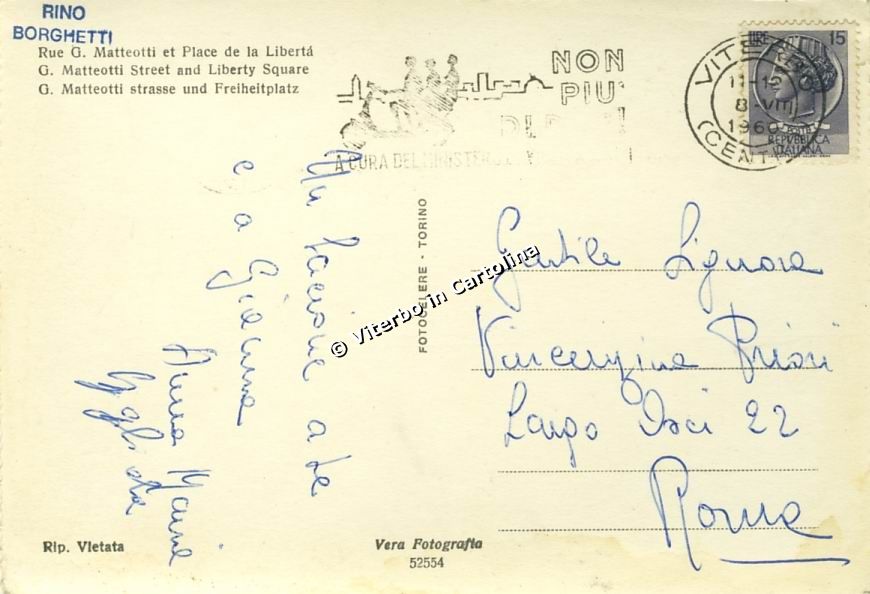 RINO
BORGHETTI
Rue G. Matteotti et Place de la Libertá
G. Matteotti Street and Liberty Square
G. Matteotti strasse und Freiheitplatz
NON
PIU'
DI
A CURA DEL MINISTERO
VITERBO
11-12
8-VIII
1960
(CENT
LIRE 15
REPVBBLICA
ITALIANA
Un bacione a te
e a Gianna
Anna Maria
FOTOCELERE - TORINO
© Viterbo in Cartolina
Gentile Signora
Vincenzina Priori
Largo Osci 22
Roma
Rip. Vietata
Vera Fotografia
52554